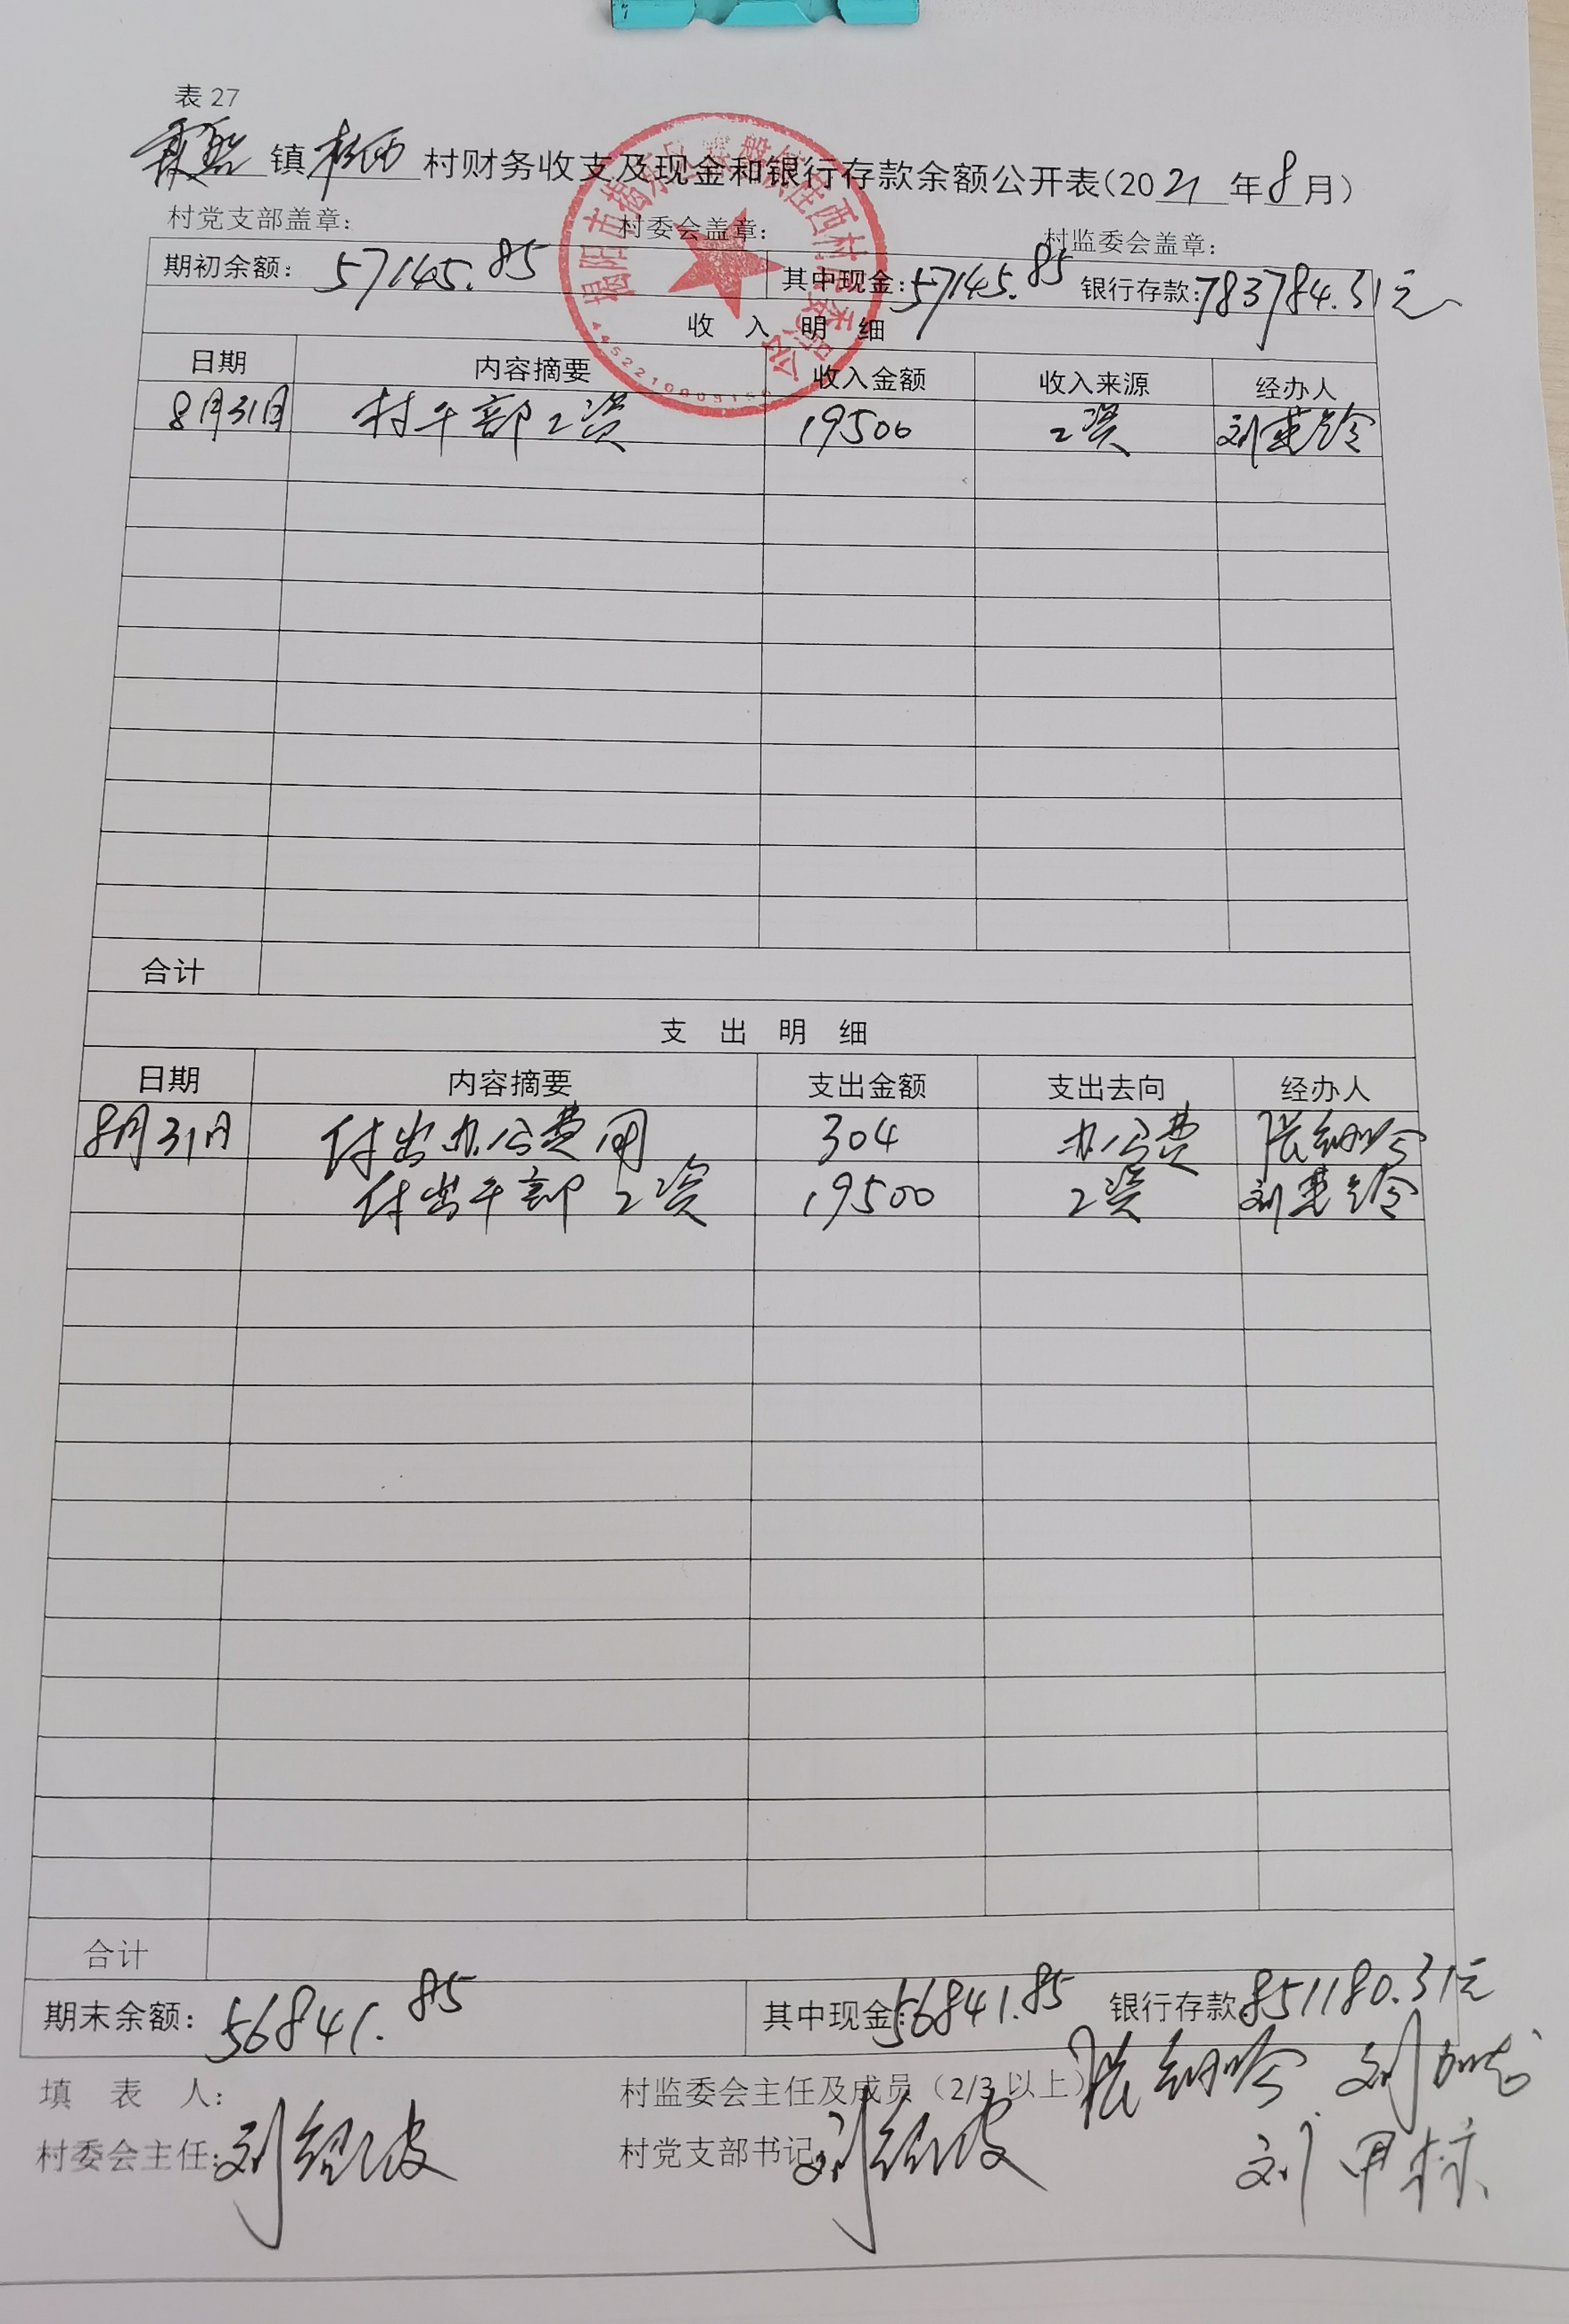 表 27
霖磐 镇 桂西 村财务收支及现金和银行存款余额公开表(2021 年 8 月)
村党支部盖章: 村委会盖章: 村监委会盖章:
期初余额: 57145.85 其中现金: 57145.85 银行存款: 783784.31元
收 入 明 细
日期 内容摘要 收入金额 收入来源 经办人
8月31日 村干部工资 19500 工资 刘
合计
支 出 明 细
日期 内容摘要 支出金额 支出去向 经办人
8月31日 付出办公费用 304 办公费 张
付出干部工资 19500 工资 刘
合计
期末余额: 56841.85 其中现金: 56841.85 银行存款: 851180.31元
填 表 人: 村监委会主任及成员(2/3 以上) 张 刘
村委会主任: 刘 波 村党支部书记: 刘 波 刘